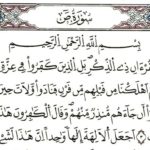 سُورَةُ صٓ
بِسْمِ اللَّهِ الرَّحْمَٰنِ الرَّحِيمِ
ذِي الذِّكْرِ بَلِ الَّذِينَ كَفَرُوا فِي عِزَّةٍ
أَهْلَكْنَا مِنْ قَبْلِهِمْ مِنْ قَرْنٍ فَنَادَوْا وَلَاتَ حِينَ
أَنْ جَاءَهُمْ مُنْذِرٌ مِنْهُمْ وَقَالَ الْكَافِرُونَ هَٰذَا
أَجَعَلَ الْآلِهَةَ إِلَٰهًا وَاحِدًا إِنَّ هَٰذَا لَشَيْءٌ